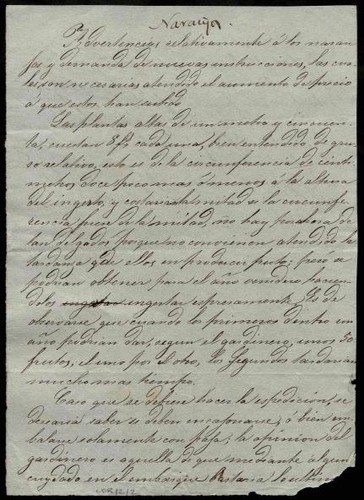 Naranja.
Advertencias relativamente á los naran-
jos y demanda de nuevas instrucciones, las cua-
les son necesarias atendido el aumento de precio
a que estos han subido.
Las plantas altas de un metro y cincuen-
ta, cuestan 8 cada una, bien entendido de grue-
so relativo, esto es de la circunferencia de centi-
metros doce poco mas ó menos á la altura
del ingerto, y costaria la mitad si la circunfe-
rencia fuese de la mitad, mas no hay
tan delgados porque no convienen atendido la
tardanza que ellos en producir fruto; pero se
podrian obtener para el año venidero haciendo
los ingertar espresamente. Es de
observarse que cuando los primeros dentro un
año podrian dar, segun el gardinero, unos 50
frutos, el uno por el otro, los segundos tardarian
mucho mas tiempo.
Caso que se deba hacer la espedicion, se
desearia saber si deben encajonarse; ó bien em-
balarse solamente con paja; la opinion del
gardinero es aquella di que mediante algun
cuydado en el embarque bastaria lo ultimo
COR12/2